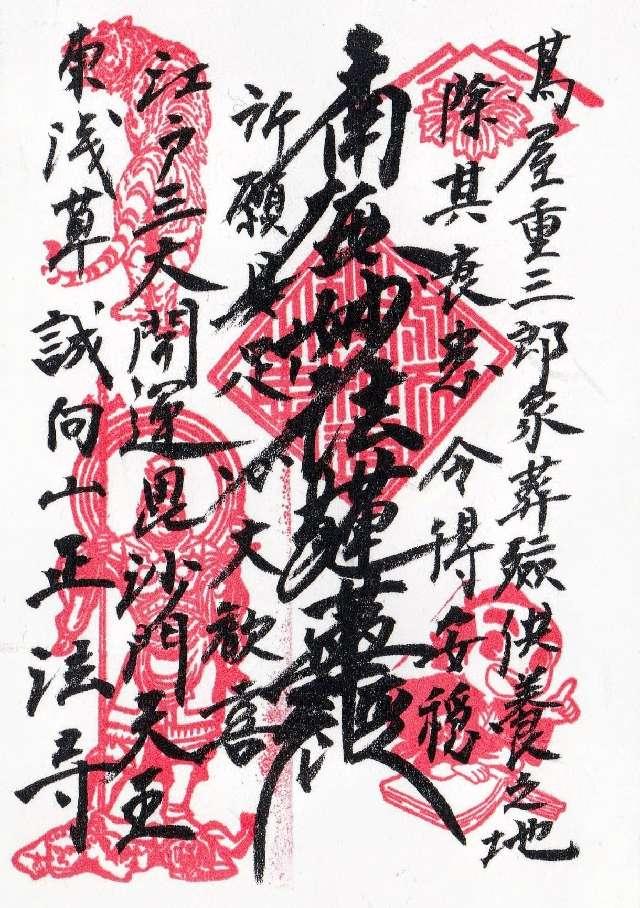 蔦屋重三郎家葬供養之地
除其衰患 令得安穏
南無妙法蓮華経
所願具足 心大歓喜
江戸三大開運毘沙門天王
東浅草 誠向山正法寺